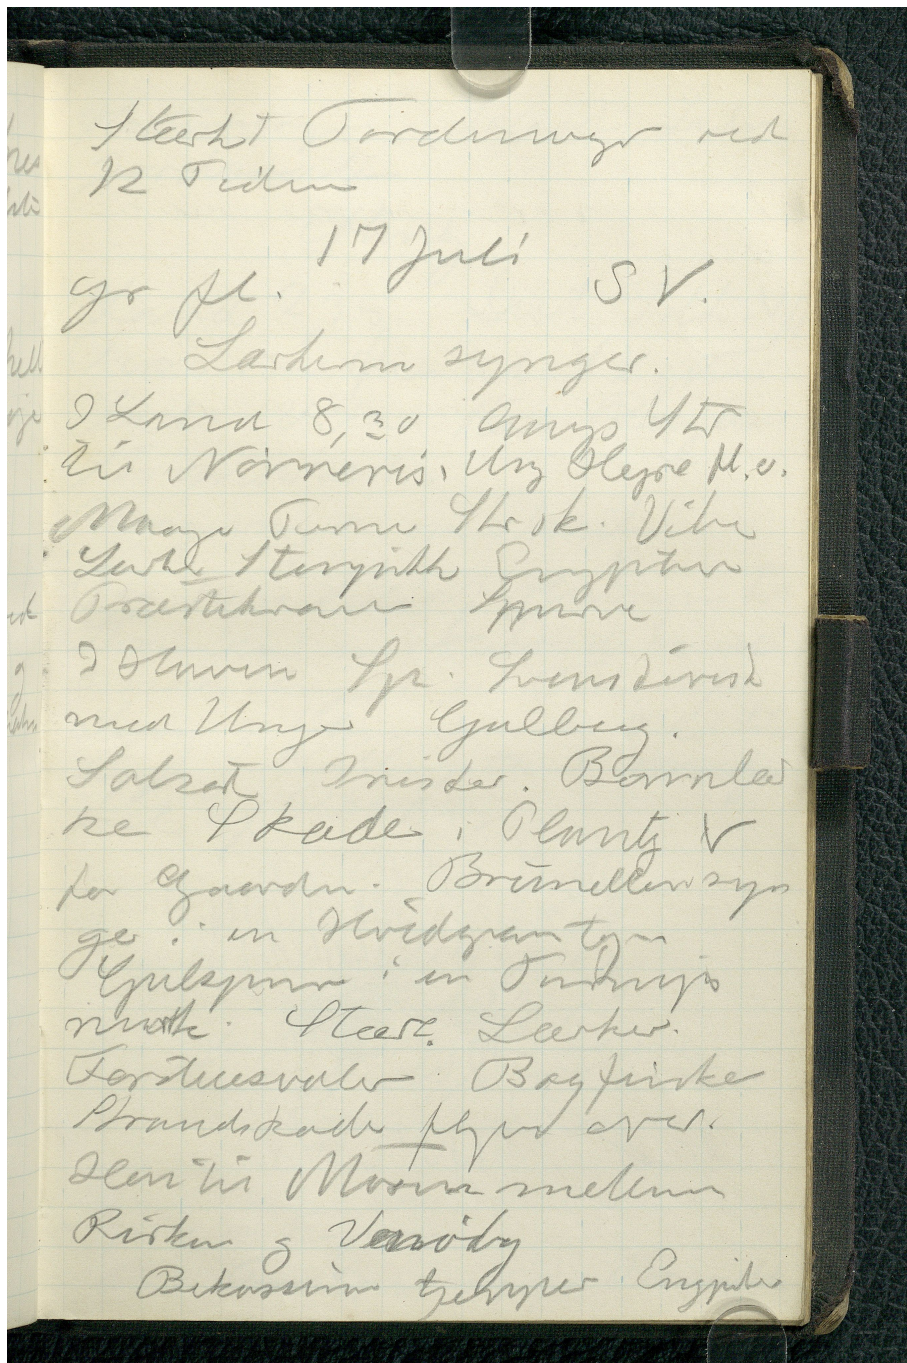 Stærkt Tordenvejr ved
12 Tiden
17 Juli
Gr fl. S V.
Lærkerne synger.
I Land 8,30 Str
til Nørrerevs. Ung Hejre fl. o.
Maage Terne Str sk. Vibe
Lærke Stenpikker Engpiber
Præstekrave Spurve
I Haven Sp. Svensk Irisk
med Unger Gulbug.
Solsort Irisker. Bomlær
ke Skade i Plantg V
for Gaarden. Brunellen syn
ger i en Hvidgran
Gulspurv i en
mark. Stær. Lærker.
Forstuesvaler Bogfinke
Strandskade flyver over.
Hen til Mosen mellem
Kirken og Venöby
Bekassiner Engpiber